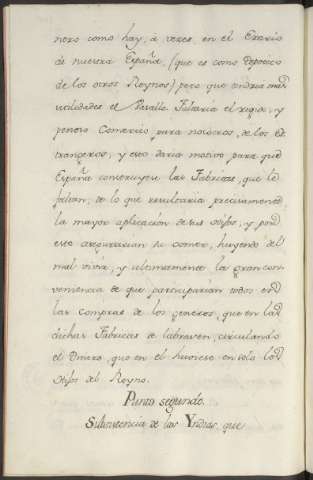 nero como hay, á veces, en el Erario
de nuestra España, (que es como Deposito
de los otros Reynos) pero que
utilidades el Vasallo. Faltaria el rigido, y
penoso Comercio para nosotros, de los Es
trangeros, y esto daria motivo para que
España construyese las Fabricas, que le
faltan; de lo que resultaria precisamente
la mayor aplicacion de sus
esto asegurarian su comer, huyendo del
mal vivir, y ultimamente la gran con
veniencia de que participarian todos en
las compras de los generos, que en las
dichas Fabricas se labrasen, circulando
el Dinero, que en el huviese en solo los
del Reyno.
Punto segundo.
Subsistencia de las Yndias, que